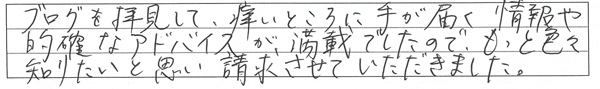 ブログを拝見して、痒いところに手が届く情報や
的確なアドバイスが、満載でしたので、もっと色々
知りたいと思い請求させていただきました。